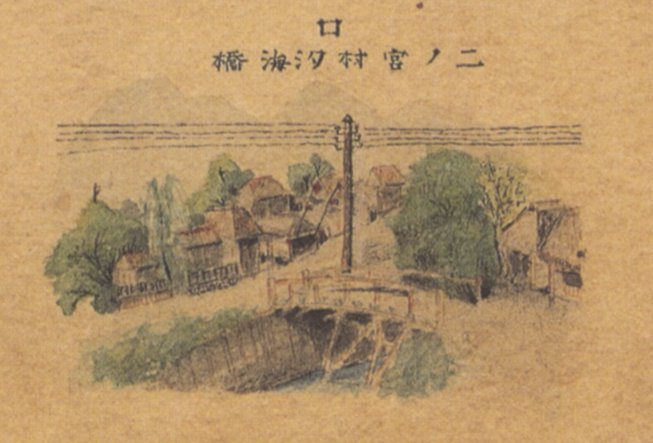 ロ
二ノ宮村汐海橋